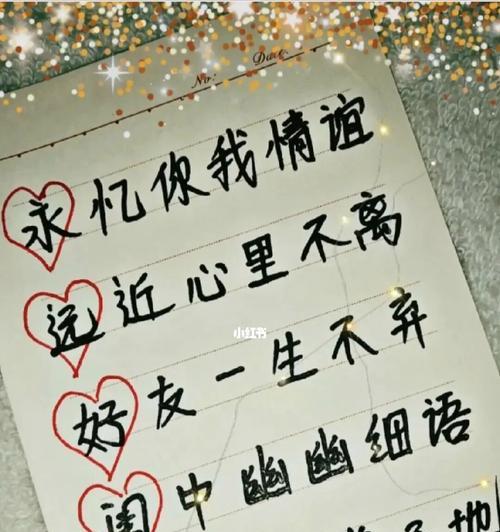 No: Date:
永忆你我情谊
远近心里不离
小红书
好友一生不弃
闺中幽幽细语